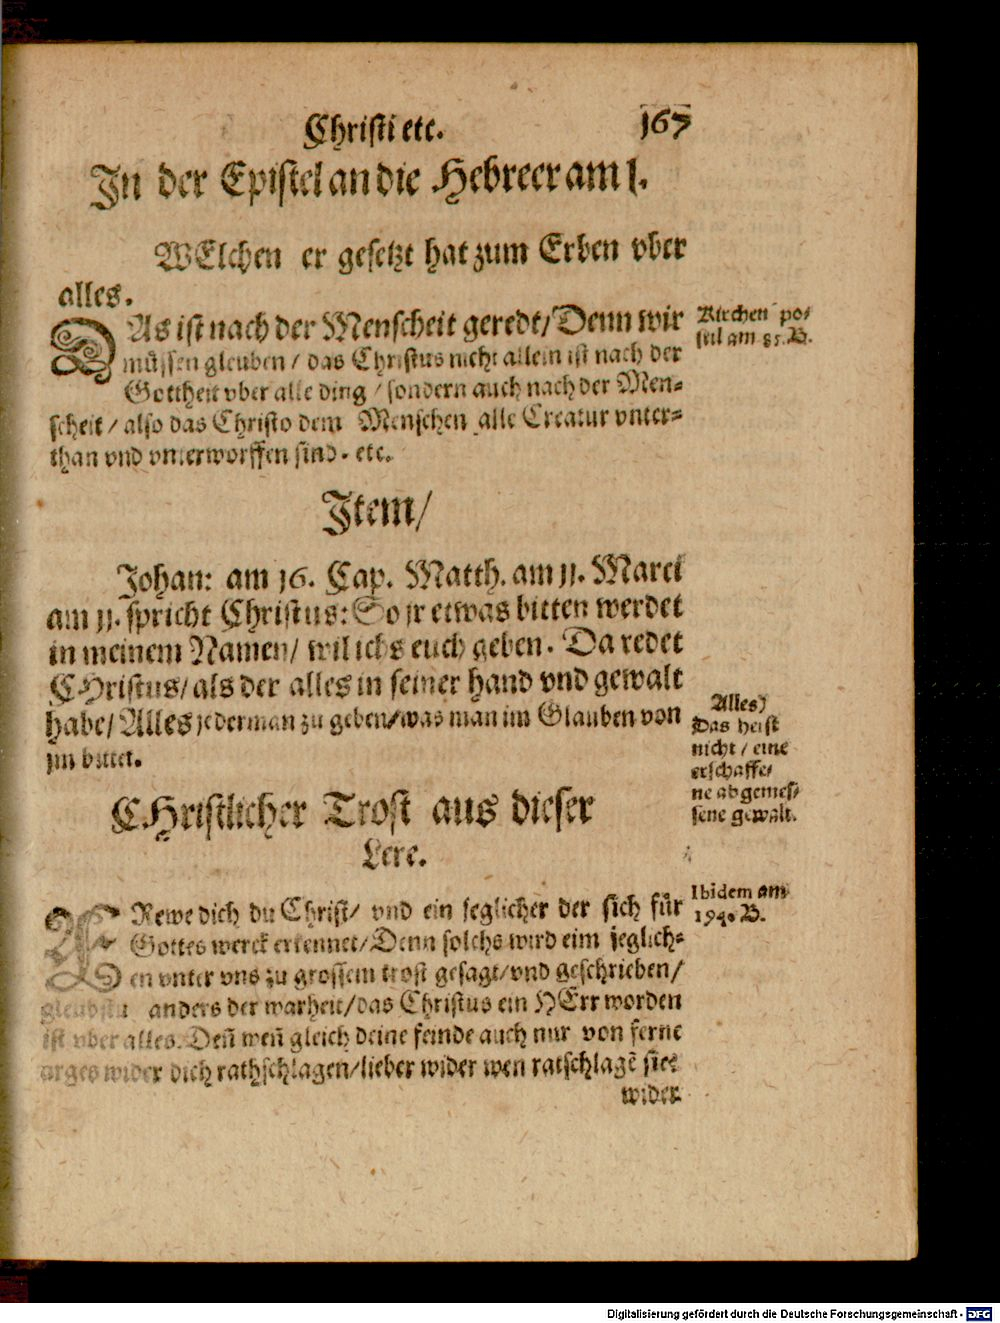 Christi etc. 167
In der Epistel an die Hebreer am 1.
WElchen er gesetzt hat zum Erben vber
alles.
DAs ist nach der Menscheit geredt/ Denn wir
müssen gleuben/ das Christus nicht allein ist nach der
Gottheit vber alle ding/ sondern auch nach der Men-
scheit/ also das Christo dem Menschen alle Creatur vnter-
than vnd vnterworffen sind. etc.
Kirchen po-
stil am 81. B.
Item/
Johan: am 16. Cap. Matth. am 11. Marci
am 11. spricht Christus: So jr etwas bitten werdet
in meinem Namen/ wil ichs euch geben. Da redet
CHristus/ als der alles in seiner hand vnd gewalt
habe/ Alles jederman zu geben/ was man im Glauben von
jm bittet.
Alles)
Das heist
nicht/ eine
erschaffe-
ne abgemes-
sene gewalt.
CHristlicher Trost aus dieser
Lere.
FRewe dich du Christ/ vnd ein jeglicher der sich für
Gottes werck erkennet/ Denn solchs wird eim jeglich-
en vnter vns zu grossem trost gesagt/ vnd geschrieben/
gleubstu anders der warheit/ das Christus ein HErr worden
ist vber alles. Deñ weñ gleich deine feinde auch nur von ferne
arges wider dich rathschlagen/ lieber wider wen ratschlagẽ sie?
wider
Ibidem am
194. B.
Digitalisierung gefördert durch die Deutsche Forschungsgemeinschaft - DFG